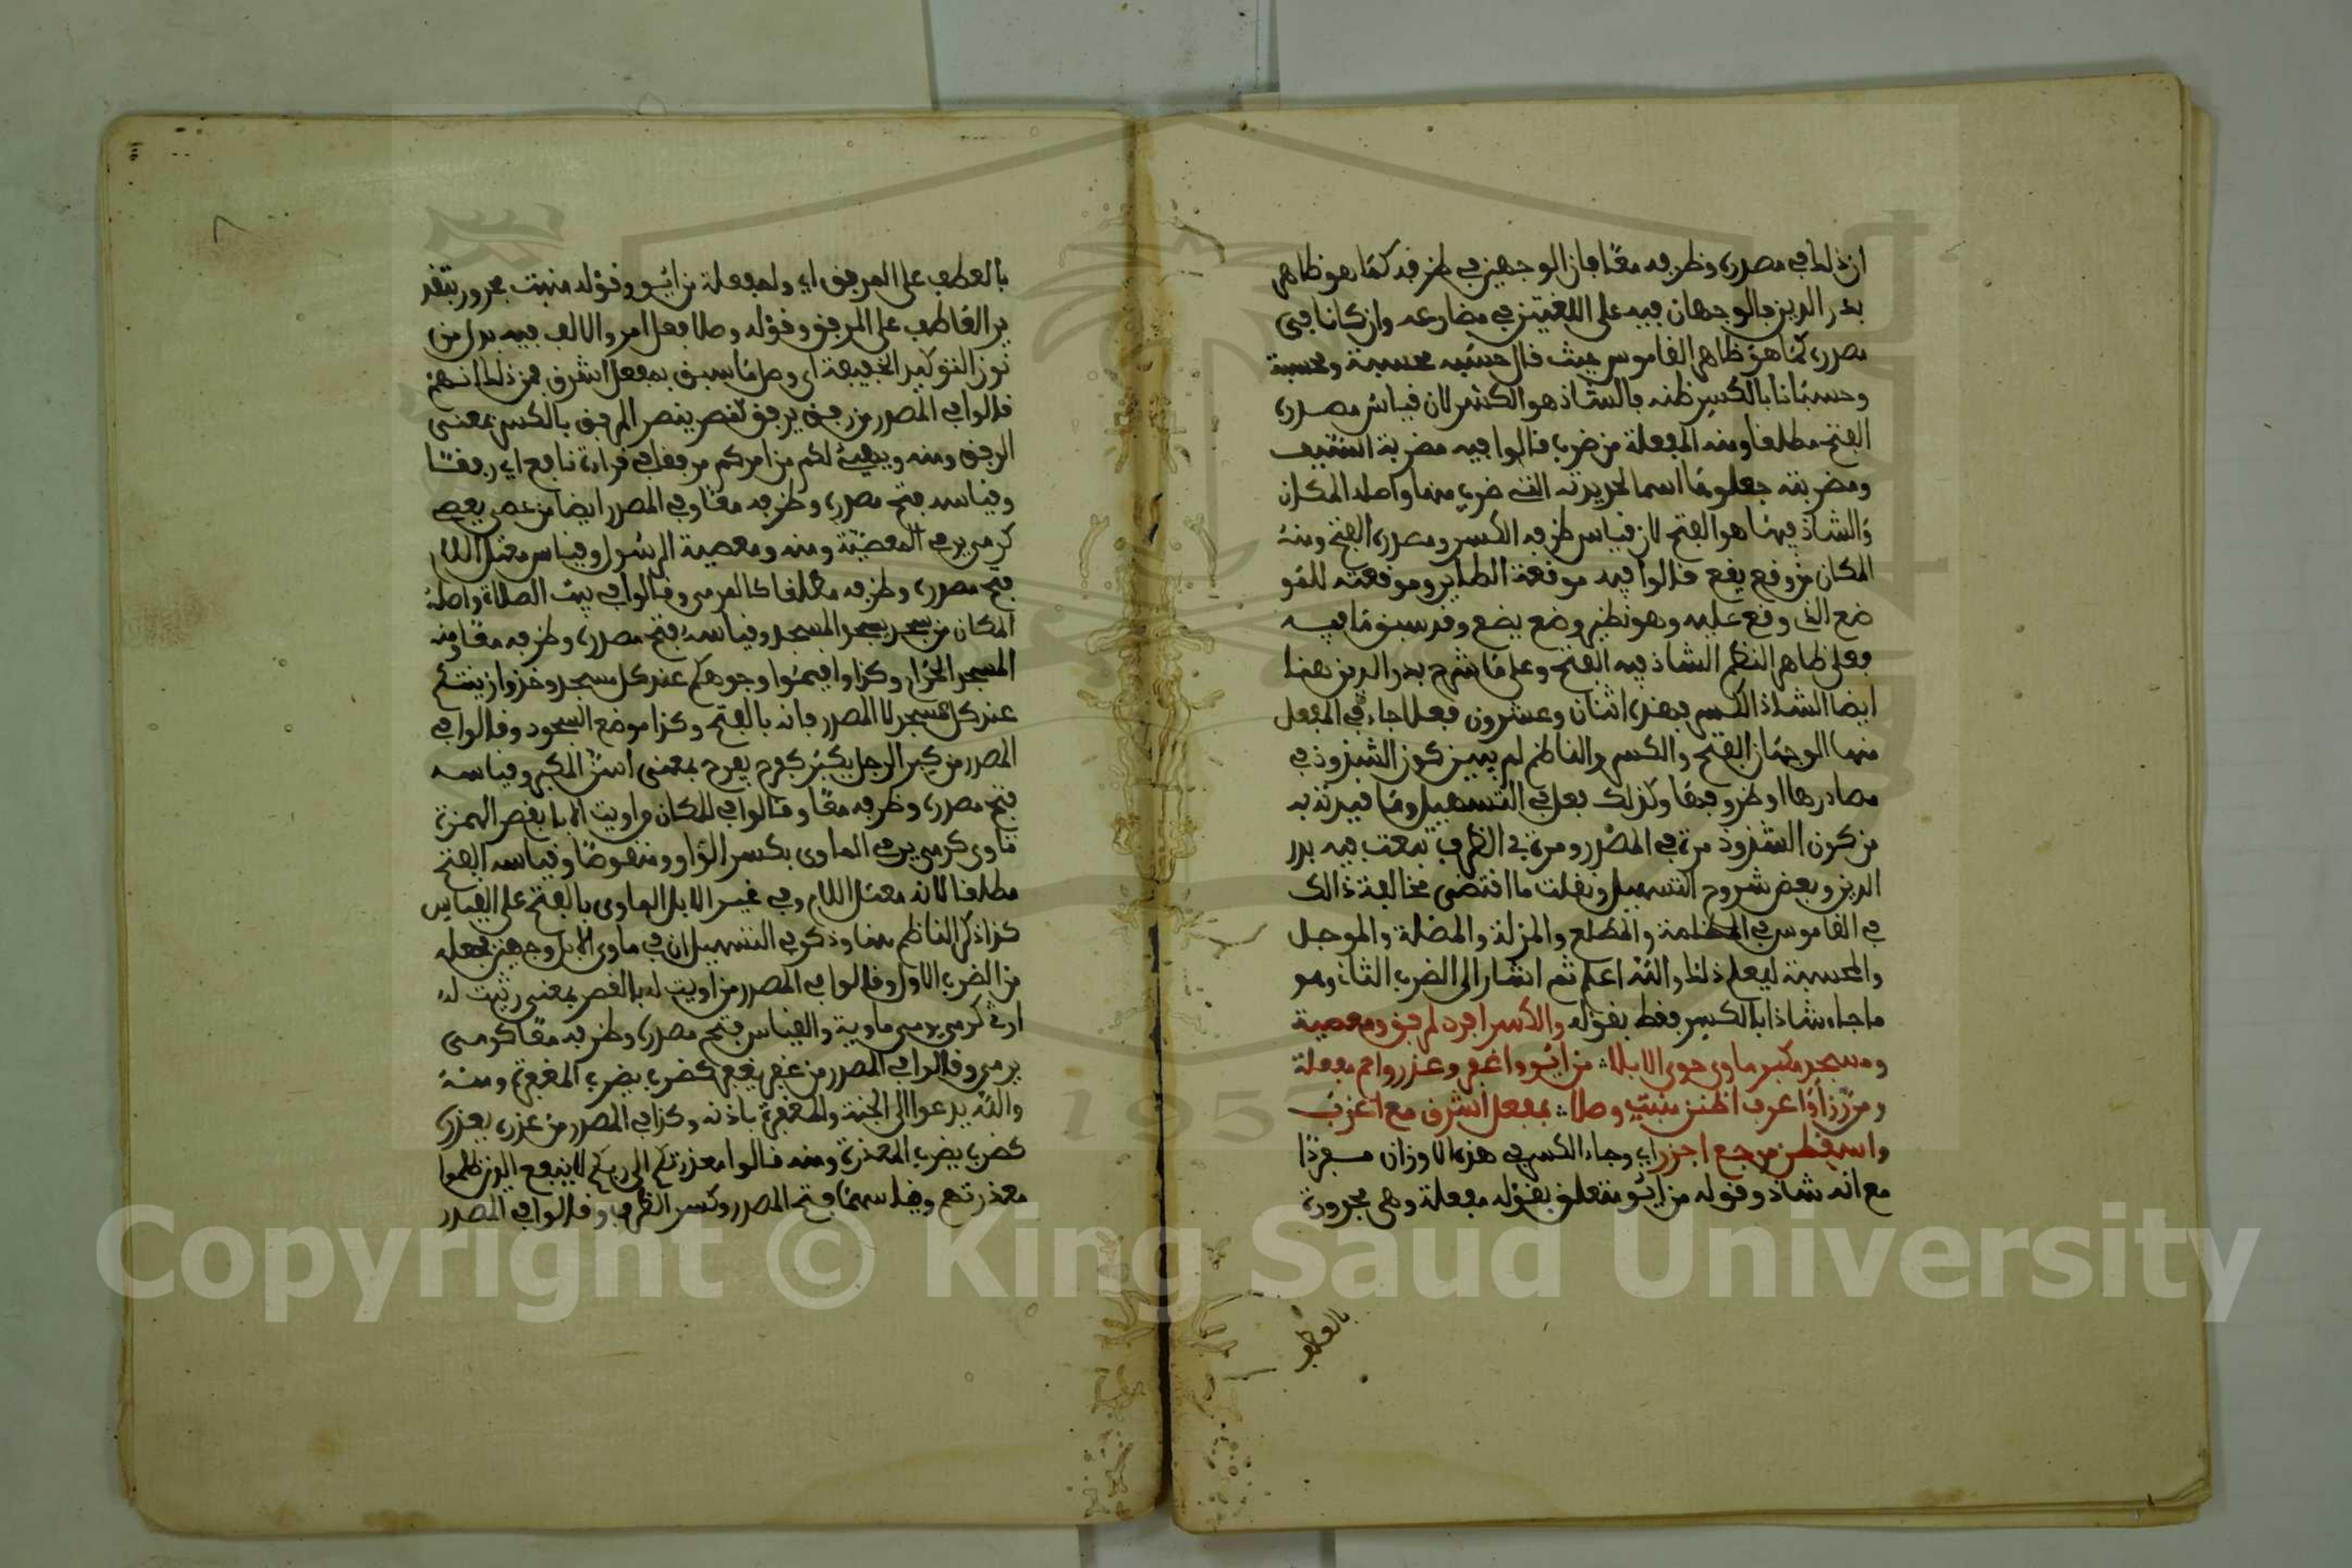 ان ذلك في مصدره وظرفه معًا فان الوجهين في ظرفه كما هو ظاهر
بدر الدين فالوجهان فيه على اللغتين في مضارعه وان كانا في
مصدره كما هو ظاهر القاموس حيث قال حسبه محسبة ومحسبة
وحسبانا بالكسر ظنه فالشاذ هو الكسر لان قياس مصدره
الفتح مطلقا ومنه المفعلة من ضرب قالوا فيه مضربة السيف
ومضربته جعلوها اسما لحديدته التي ضرب منها واصله المكان
والشاذ فيها هو الفتح لان قياس ظرفه الكسر ومصدره الفتح ومنه
المكان من وقع يقع قالوا فيه موقعة الطاير وموقعته للمو
ضع الذي وقع عليه وهو نظير وضع يضع وقد سبق ما فيه
فعلى ظاهر النظم الشاذ فيه الفتح وعلى ما شرح بدر الدين هنا
ايضا الشاذ الكسر فهذه اثنان وعشرون فعلا جاء في المفعل
منها الوجهان الفتح والكسر والناظم لم يبين كون الشذوذ في
مصادرها او ظروفها وكذلك فعل في التسهيل وما قيدته به
من كون الشذوذ مرة في المصدر ومرة في الظرف تبعت فيه بدر
الدين وبعض شروح التسهيل ونقلت ما اقتضى مخالفة ذالك
في القاموس في المظلمة والمطلع والمزلة والمضلة والموجل
والمحسبة ليعلم ذلك والله اعلم ثم اشار الى الضرب الثاني وهو
ما جاء شاذا بالكسر فقط بقوله والكسر افرد لمرفق ومعصية
ومسجد مكبر ماوى حوى الابلا من ايو واغفر وعذر واحم مفعلة
ومن رزأ واعرف اظنن منبت وصلا بمفعل اشرق مع اغرب
واسقطن مرجع اجزر اي وجاء الكسر في هذه الاوزان مفردًا
مع انه شاذ وقوله من ايو متعلق بقوله مفعلة وهي مجرورة
بالعطف
بالعطف على المرفق اي ولمفعلة من ايو وقوله منبت مجرور بتقد
ير العاطف على المرفق وقوله وصلا فعل امر والالف فيه بدل من
نون التوكيد الخفيفة اي وصل ما سبق بمفعل اشرق فمن ذلك انهم
قالوا في المصدر من رفق يرفق كنصر ينصر المرفق بالكسر بمعنى
الرفق ومنه ويهيئ لكم من امركم مرفقا في قراءة نافع اي رفقًا
وقياسه فتح مصدره وظرفه معًا وفي المصدر ايضا من عصى يعصي
كرمى يرمي المعصية ومنه ومعصية الرسول وقياس معتل اللام
فتح مصدره وظرفه مطلقا كالمرمى وقالوا في بيت الصلاة واصله
المكان من سجد يسجد المسجد وقياسه فتح مصدره وظرفه معًا ومنه
المسجد الحرام وكذا واقيموا وجوهكم عند كل مسجد وخذوا زينتكم
عند كل مسجد لا المصدر فانه بالفتح وكذا موضع السجود وقالوا في
المصدر من كبر الرجل يكبر كفرح يفرح بمعنى اسن المكبر وقياسه
فتح مصدره وظرفه معًا وقالوا في المكان من اويت الابل بقصر الهمزة
تاوي كرمى يرمي الماوي بكسر الواو ومنقوصا وقياسه الفتح
مطلقا لانه معتل اللام وفي غير الابل الماوى بالفتح على القياس
كذا ذكر الناظم هنا وذكر في التسهيل ان في ماوى الابل وجهين فجعله
من الضرب الاول وقالوا في المصدر من اويت له بالقصر بمعنى رثيت له
ارثي كرمى يرمي ماوية والقياس فتح مصدره وظرفه معًا كرمى
يرمي وقالوا في المصدر من غفر يغفر كضرب يضرب المغفرة ومنه
والله يدعوا الى الجنة والمغفرة باذنه وكذا في المصدر من عذره يعذره
كضرب يضرب المعذرة ومنه قالوا معذرتكم الى ربكم لا ينفع الذين ظلموا
معذرتهم وقياسهما فتح المصدر وكسر الظرف وقالوا في المصدر
1957
Copyright © King Saud University